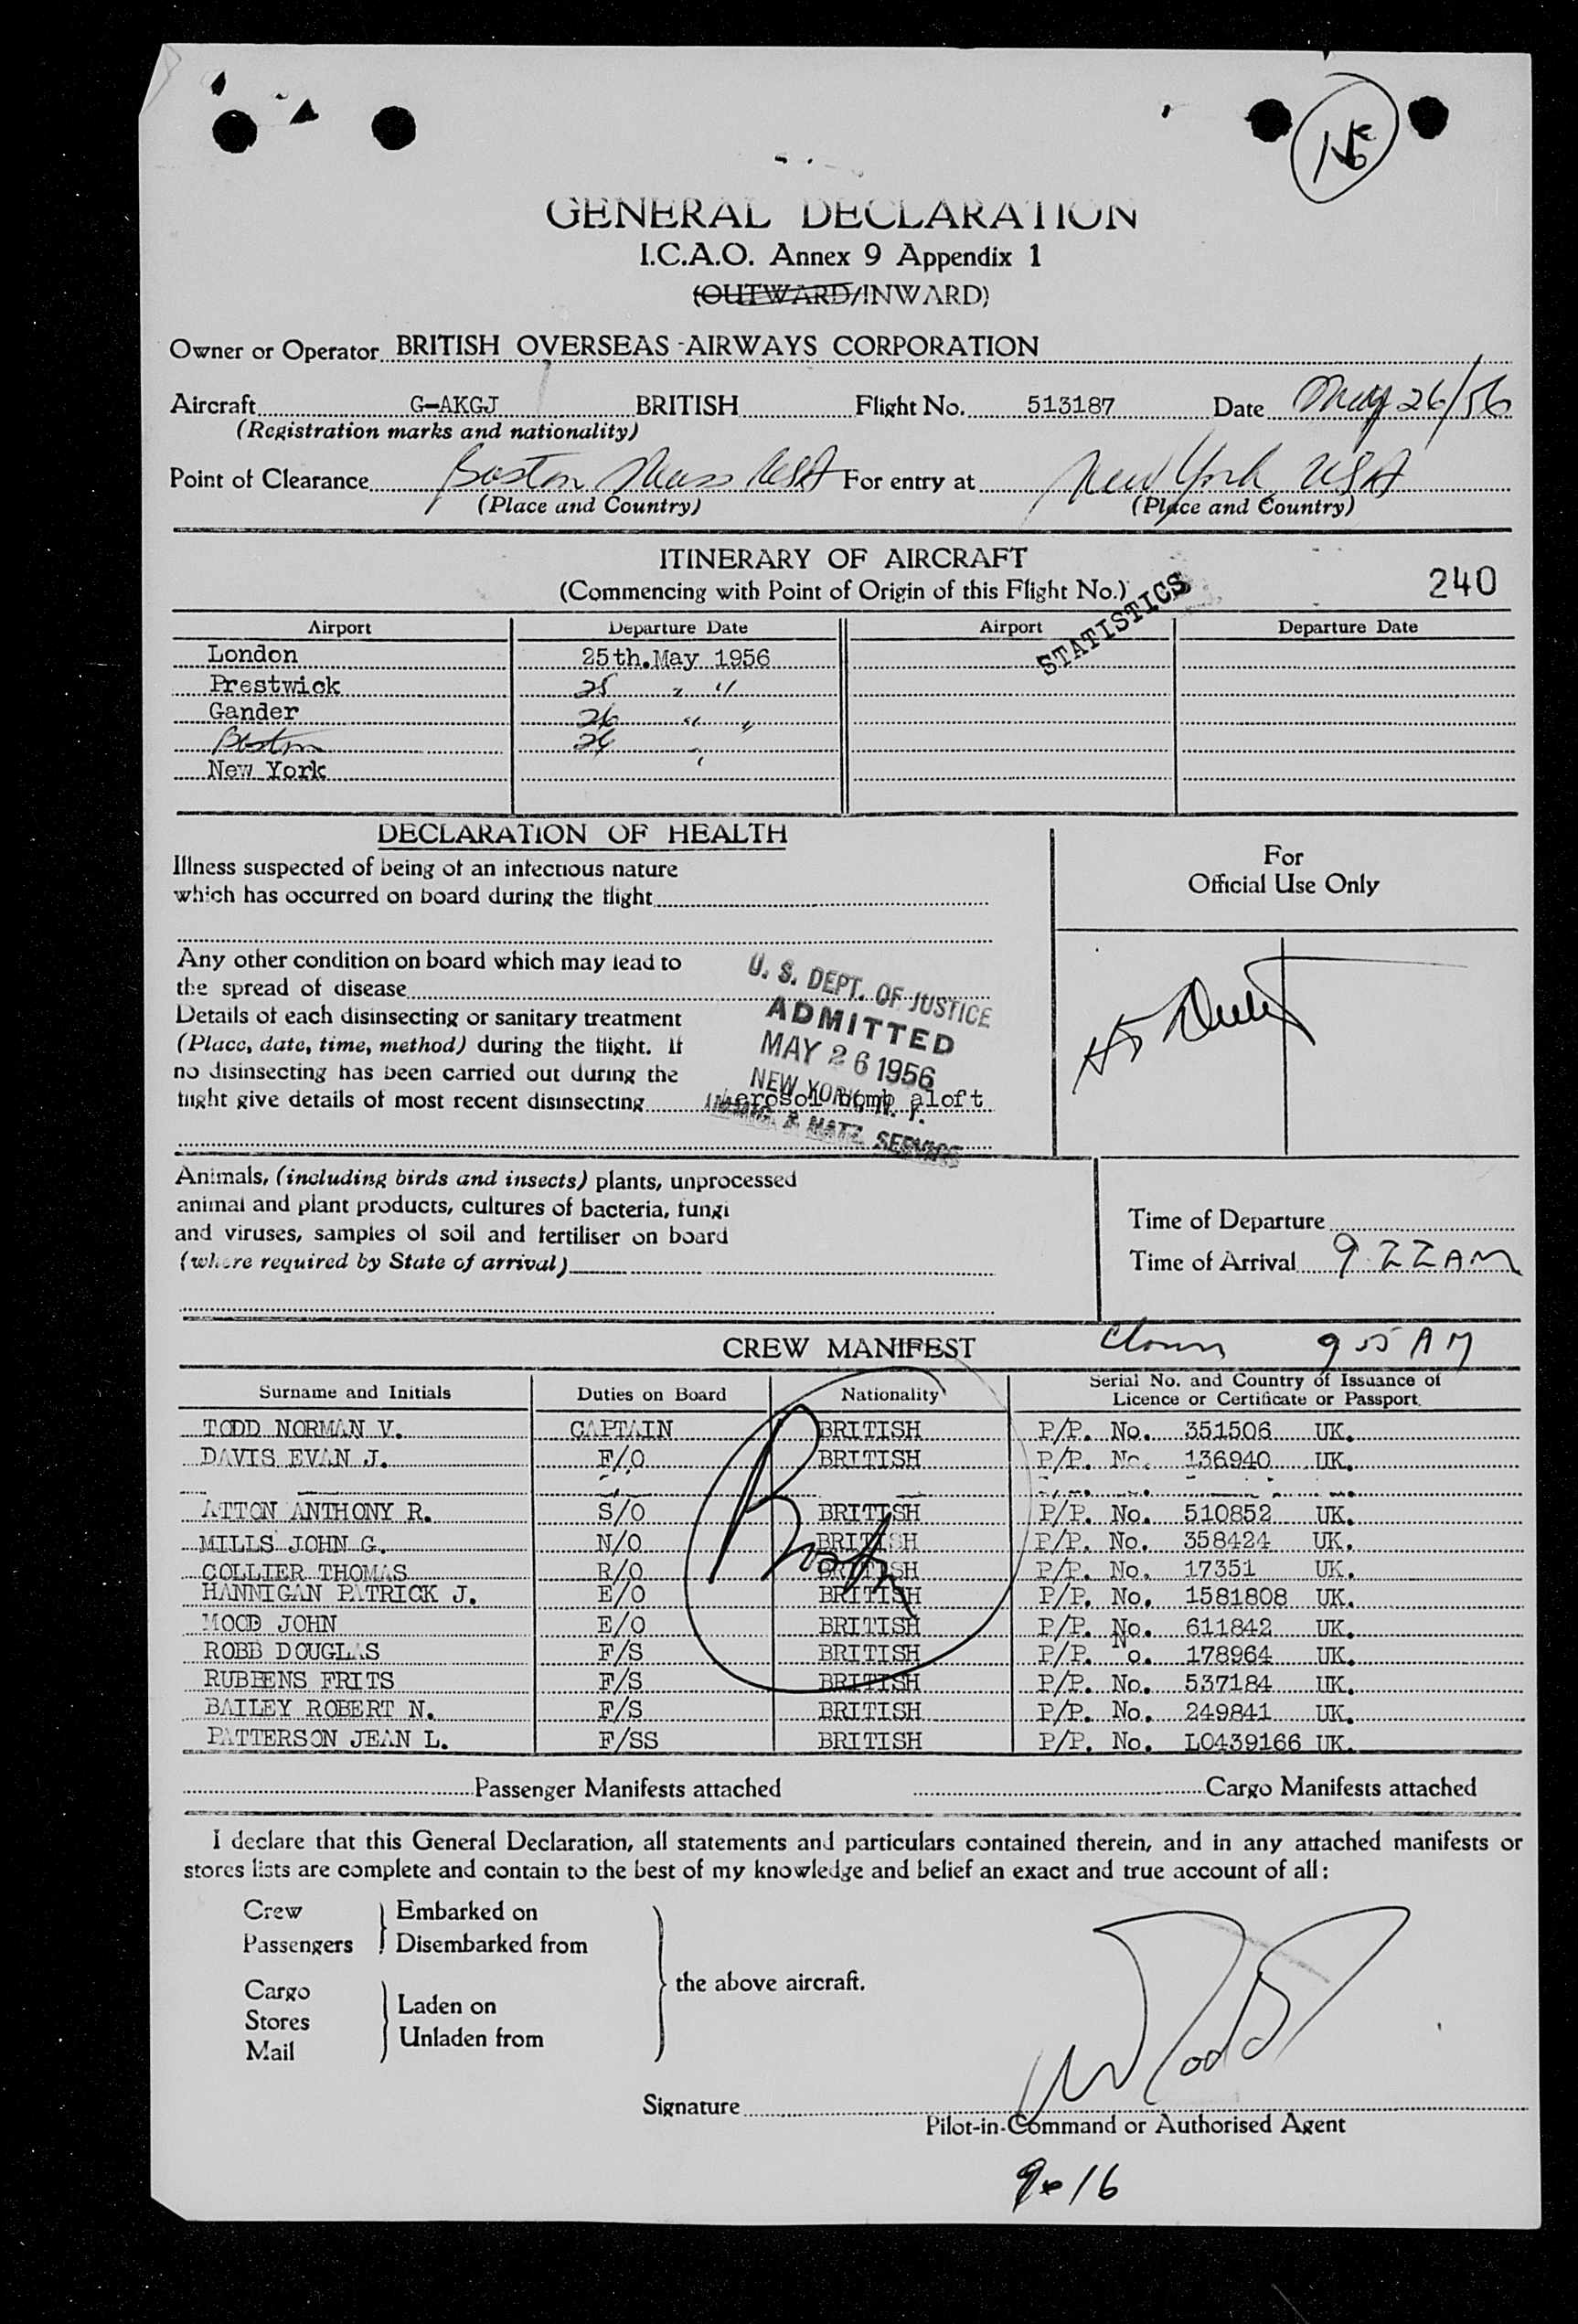 GENERAL DECLARATION
I.C.A.O. Annex 9 Appendix 1
(OUTWARD/INWARD)
Owner or Operator BRITISH OVERSEAS AIRWAYS CORPORATION
Aircraft G-AKGJ BRITISH Flight No. 513187 Date May 26/56
(Registration marks and nationality)
Point of Clearance Boston Mass USA For entry at New York, USA
(Place and Country) (Place and Country)
ITINERARY OF AIRCRAFT
(Commencing with Point of Origin of this Flight No.) 240
STATISTICS
Airport Departure Date Airport Departure Date
London 25th.May 1956
Prestwick 25 " "
Gander 26 " "
Boston 26 "
New York
DECLARATION OF HEALTH
For
Official Use Only
Illness suspected of being of an infectious nature
which has occurred on board during the flight
Any other condition on board which may lead to
the spread of disease
Details of each disinsecting or sanitary treatment
(Place, date, time, method) during the flight. If
no disinsecting has been carried out during the
flight give details of most recent disinsecting Aerosol bomb aloft
U. S. DEPT. OF JUSTICE
ADMITTED
MAY 26 1956
NEW YORK, N. Y.
IMMIG. & NATZ. SERVICE
Animals, (including birds and insects) plants, unprocessed
animal and plant products, cultures of bacteria, fungi
and viruses, samples of soil and fertiliser on board
(where required by State of arrival)
Time of Departure
Time of Arrival 9 22 AM
CREW MANIFEST 9 55 AM
Surname and Initials Duties on Board Nationality Serial No. and Country of Issuance of
Licence or Certificate or Passport.
TODD NORMAN V. CAPTAIN BRITISH P/P. No. 351506 UK.
DAVIS EVAN J. F/O BRITISH P/P. No. 136940 UK.
ATTON ANTHONY R. S/O BRITISH P/P. No. 510852 UK.
MILLS JOHN G. N/O BRITISH P/P. No. 358424 UK.
COLLIER THOMAS R/O BRITISH P/P. No. 17351 UK.
HANNIGAN PATRICK J. E/O BRITISH P/P. No. 1581808 UK.
MOOD JOHN E/O BRITISH P/P. No. 611842 UK.
ROBB DOUGLAS F/S BRITISH P/P. No. 178964 UK.
RUBBENS FRITS F/S BRITISH P/P. No. 537184 UK.
BAILEY ROBERT N. F/S BRITISH P/P. No. 249841 UK.
PATTERSON JEAN L. F/SS BRITISH P/P. No. LO439166 UK.
Boston
Passenger Manifests attached Cargo Manifests attached
I declare that this General Declaration, all statements and particulars contained therein, and in any attached manifests or
stores lists are complete and contain to the best of my knowledge and belief an exact and true account of all:
Crew Embarked on
Passengers Disembarked from
the above aircraft.
Cargo
Stores Laden on
Mail Unladen from
Signature N V Todd
Pilot-in-Command or Authorised Agent